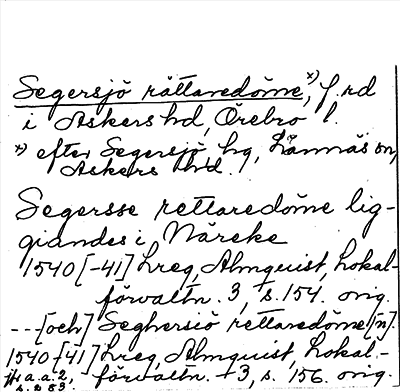 Segersjö rättaredöme, x) f.rd
i Askers hd, Örebro l.
x) efter Segersjö hg, Lännäs sn,
Askers hd.
Segersse rettaredöme lig-
giandes i Närcke
1540[-41] h reg, Almquist, Lokal-
förvaltn. 3, s. 154. orig.
---[och] Seghersiö rettaredöme[n].
1540[-41] h reg, Almquist, Lokal-
jfr a.a. 2, förvaltn. 3, s. 156. orig.
s. 253.